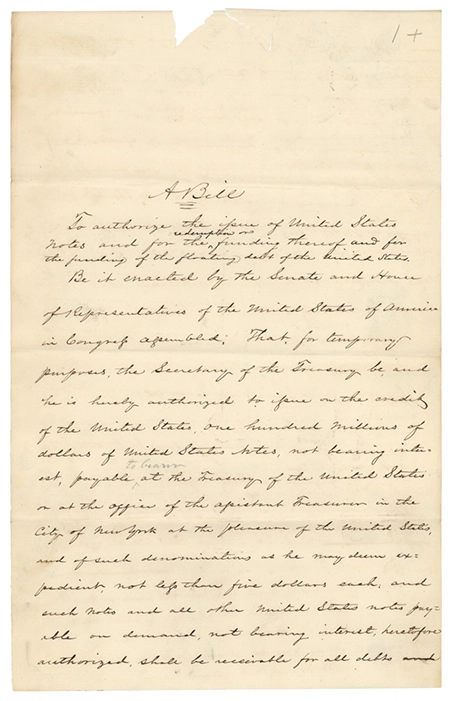 1 +
A Bill
To authorize the issue of United States
redemption or
Notes and for the funding thereof and for
the funding of the floating debt of the United States.
Be it enacted by the Senate and House
of Representatives of the United States of America
in Congress assembled; That for temporary
purposes, the Secretary of the Treasury be, and
he is hereby authorized to issue on the credit
of the United States, one hundred millions of
dollars of United States Notes, not bearing inter-
to bearer
est, payable, at the Treasury of the United States
or at the office of the assistant Treasurer in the
City of New York at the pleasure of the United States,
and of such denominations as he may deem ex=
pedient, not less than five dollars each; and
such notes and all other United States notes pay=
able on demand, not bearing interest, heretofore
authorized, shall be receivable for all debts and